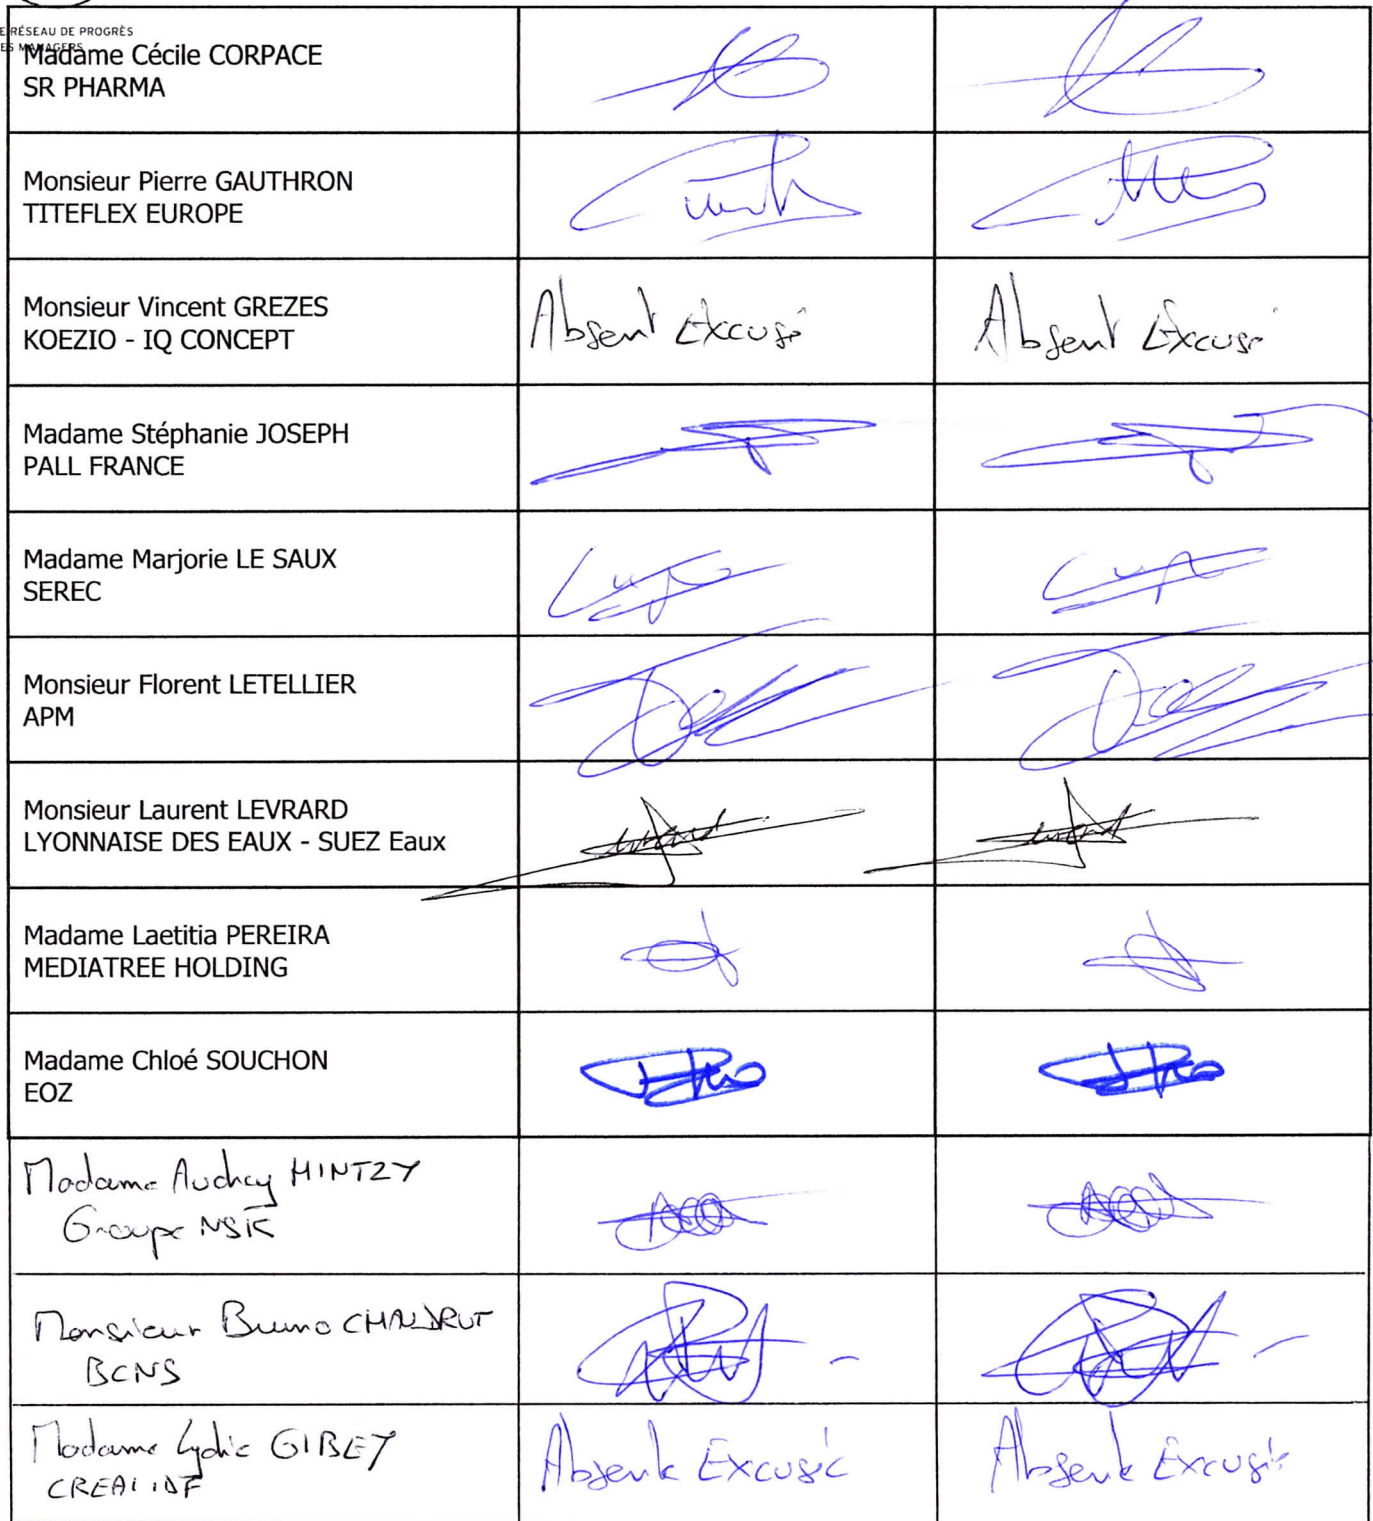 RÉSEAU DE PROGRÈS
MANAGERS
Madame Cécile CORPACE
SR PHARMA
Monsieur Pierre GAUTHRON
TITEFLEX EUROPE
Monsieur Vincent GREZES
KOEZIO - IQ CONCEPT
Absent Excusé
Absent Excusé
Madame Stéphanie JOSEPH
PALL FRANCE
Madame Marjorie LE SAUX
SEREC
Monsieur Florent LETELLIER
APM
Monsieur Laurent LEVRARD
LYONNAISE DES EAUX - SUEZ Eaux
Madame Laetitia PEREIRA
MEDIATREE HOLDING
Madame Chloé SOUCHON
EOZ
Madame Audrey HINTZY
Groupe
Monsieur Bruno CHANDRUT
BCNS
Madame Lydie GIBEY
CREAI IDF
Absente Excusée
Absente Excusée